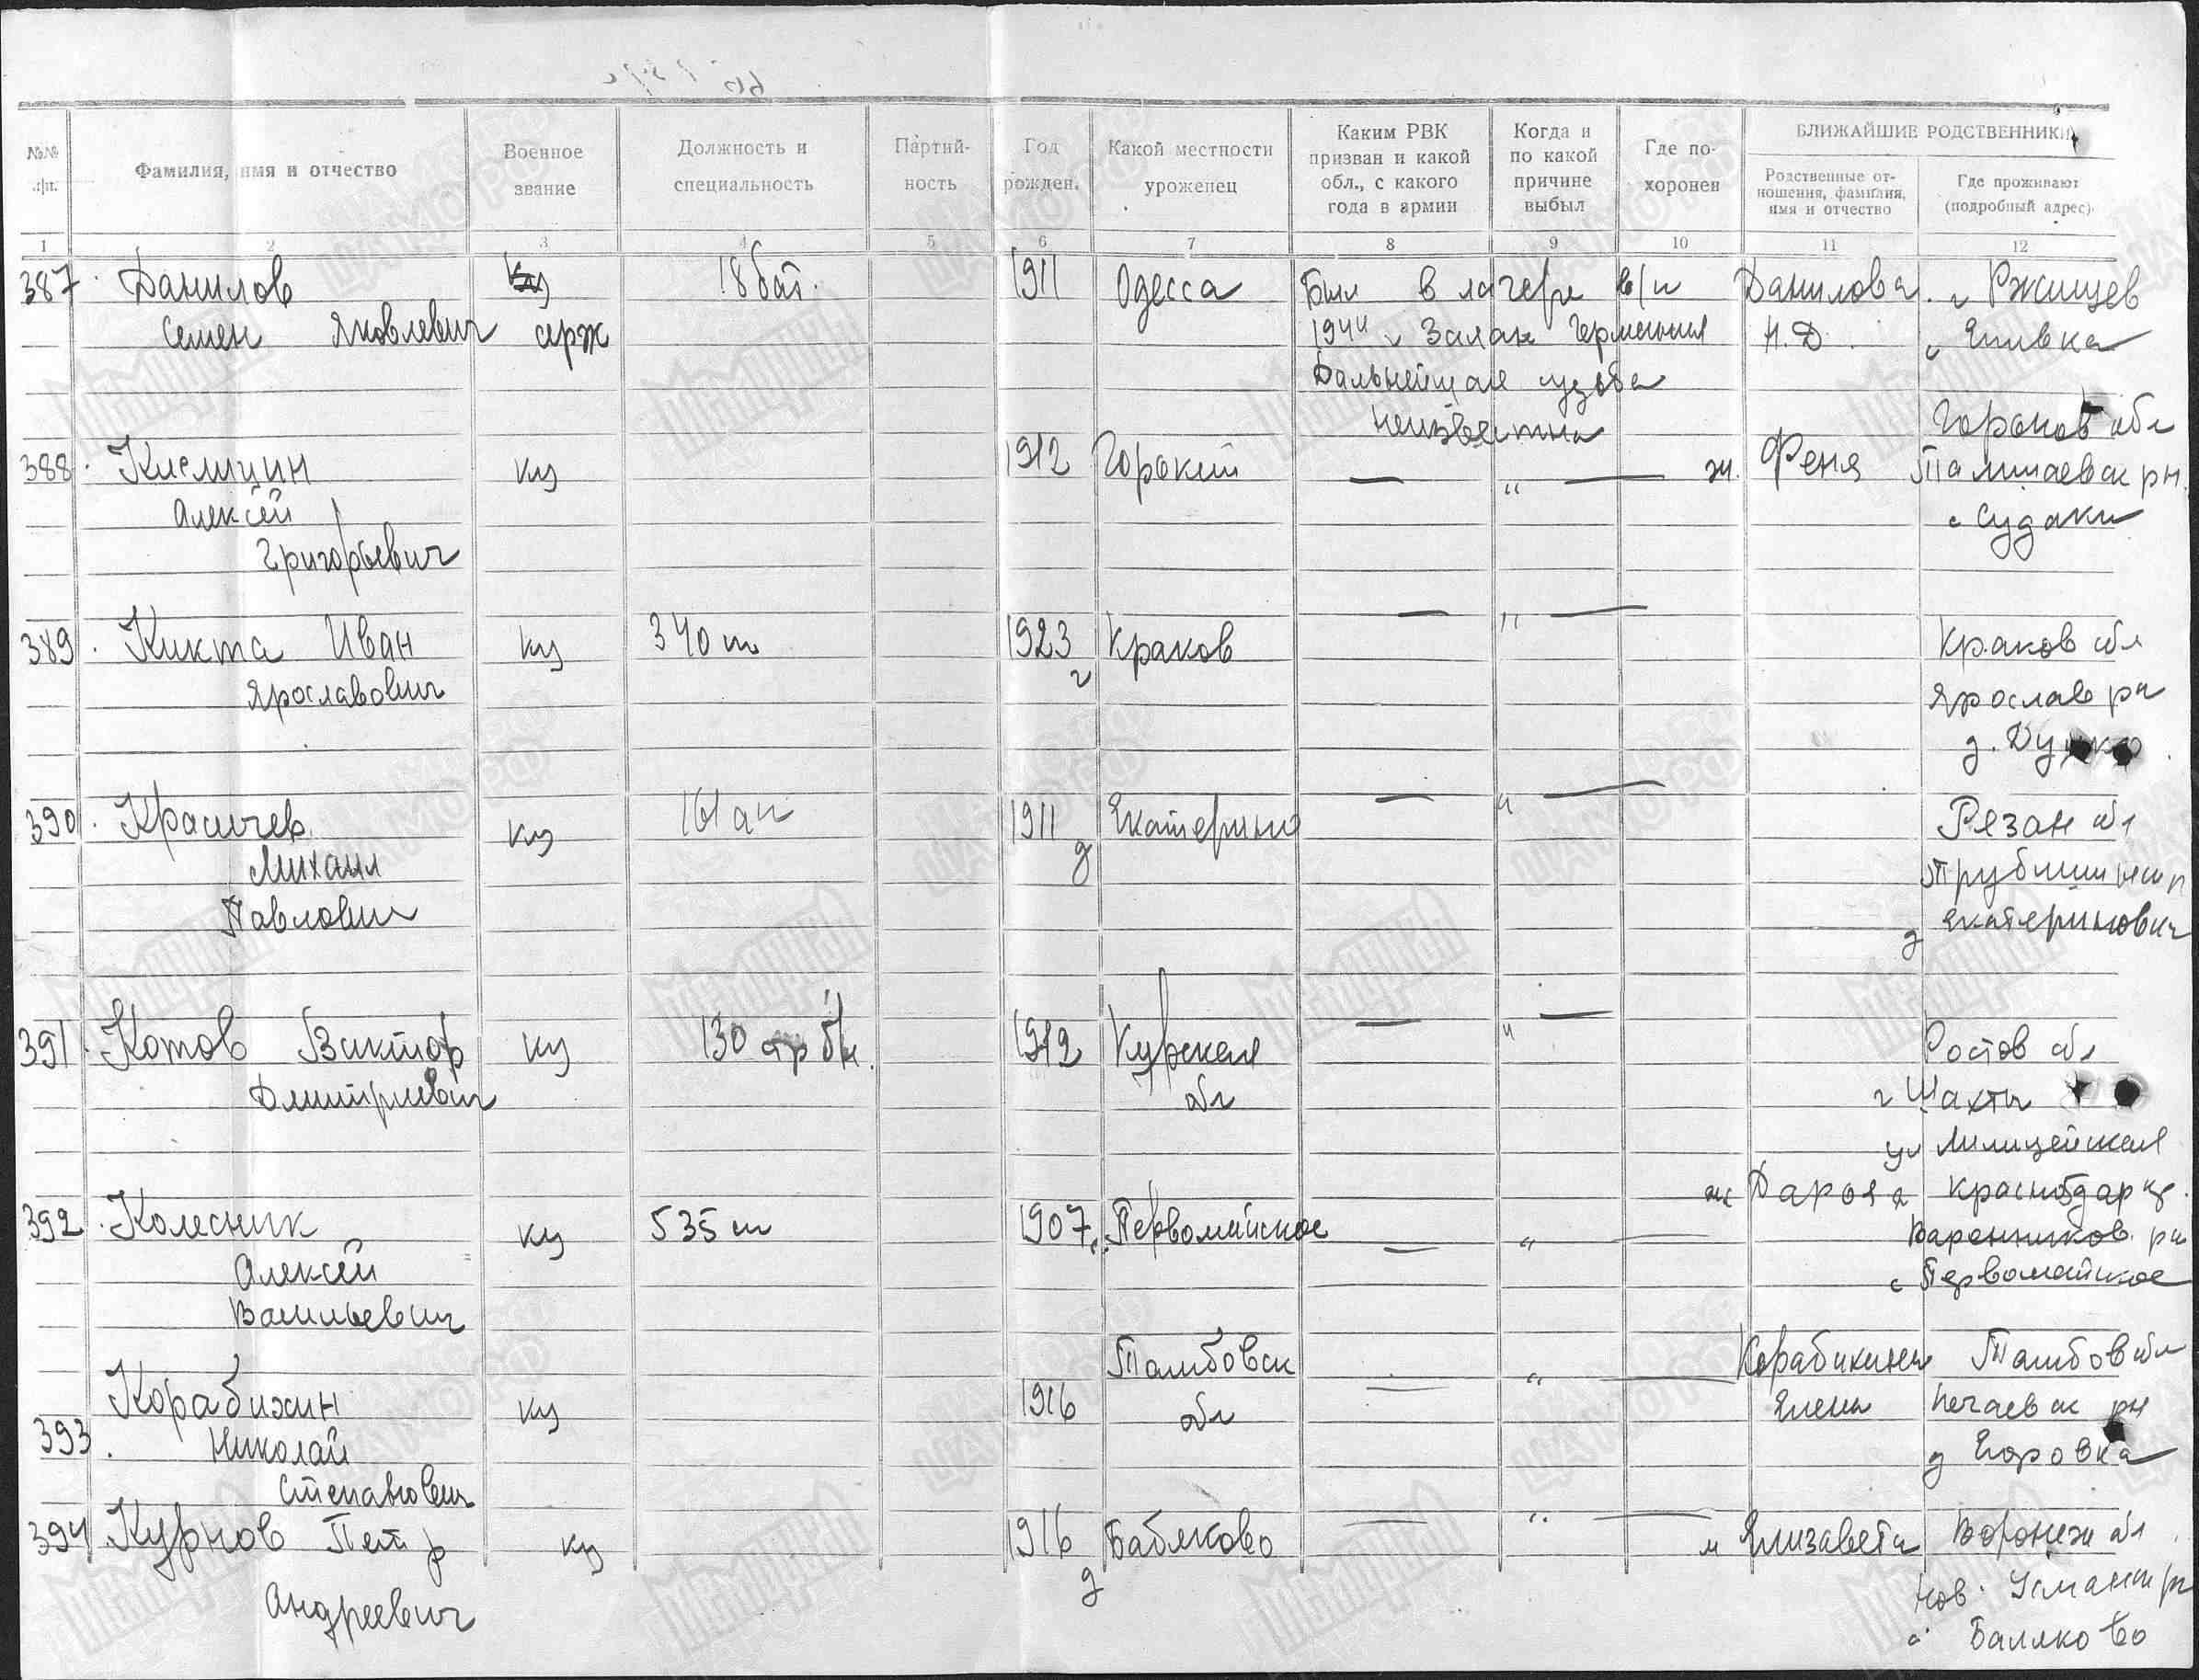 №№ п/п.
Фамилия, имя и отчество
Военное звание
Должность и специальность
Партий-ность
Год рожден.
Какой местности уроженец
Каким РВК призван и какой обл., с какого года в армии
Когда и по какой причине выбыл
Где по-хоронен
БЛИЖАЙШИЕ РОДСТВЕННИКИ
Родственные от-ношения, фамилия, имя и отчество
Где проживают (подробный адрес).
1 2 3 4 5 6 7 8 9 10 11 12
387. Данилов 18 бат. 1911 Одесса Был в лагере в/п Данилова г Ржищев
Семен Яковлевич серж 1944 г Залан Германия Н.Д. с Янивка
Дальнейшая судьба
неизвестна
Горьков обл
388. Кислицин кр 1912 Горький — " — ж. Феня рн.
Алексей с Судаки
Григорьевич
389. Кикта Иван кр 340 п 1923 г Краков — " — Краков обл
Ярославович Ярослав рн
д.
390. кр 161 ап 1911 д Екатерино — " — Рязан обл
Михаил
Павлович д Екатериновка
391. Котов Виктор кр 130 стр бн. 1912 Курская — " — Ростов обл
Дмитриевич обл г Шахты
ул Милицейская
ж Дарья Краснодар
392. Колесник кр 535 п 1907 с. Первомайское — " — Варенников. рн
Алексей с Первомайское
Васильевич
Тамбовск " — Корабихина Тамбов обл
Корабихин кр 1916 обл — Елена рн
393. Николай д Егоровка
Степанович
394 Курнов Петр кр 1916 д Бабяково — " — м Елизавета Воронеж обл
Андреевич Нов. Усманск рн
с. Бабяково